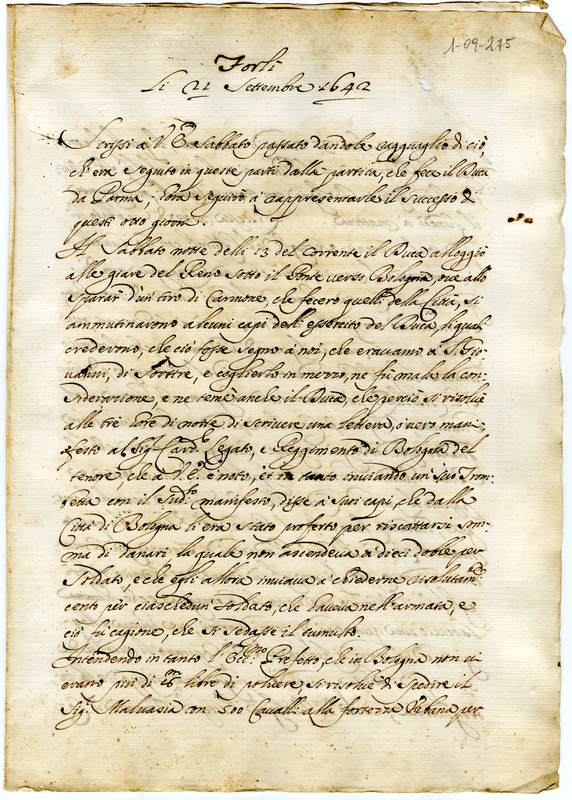 1-09-275
Forlì
Li 21 Settembre 1642
Scrissi à V. E. Sabbato passato dandole ragguaglio di ciò,
ch'era seguito in queste parti dalla partita, che fece il Duca
da Parma, hora seguirò à rappresentarle il successo di
questi otto giorni.
Il Sabbato notte delli 13 del corrente il Duca alloggiò
alle giare del Reno sotto il Ponte verso Bologna, ove allo
sparar d'un tiro di Cannone, che fecero quelli della Città, si
ammutinarono alcuni capi dell'essercito del Duca, li quali
credevono, che ciò fosse segno à noi, che eravamo à S. Gio-
vanni, di sortire, e coglierlo in mezzo, ne fù male la con-
siderazione, e ne temè anche il Duca, che perciò si risolvè
alle trè hore di notte di scrivere una lettera, overo mani-
festo al Sig. Card. Legato, e Reggimento di Bologna del
tenore, che à V. E. è noto, et in tanto inviando un suo Trom-
betta con il sud.º manifesto, disse à suoi capi, che dalla
Città di Bologna li era stato proferto per riscattarsi som-
ma di danari la quale non ascendeva à dieci doble per
soldato, e che egli allora inviava à chiederne risolutam.
cento per ciaschedun soldato, che haveva nell'armata, e
ciò fù cagione, che si sedasse il tumulto.
Intendendo in tanto Prefetto, che in Bologna non vi
erano più di libre di polvere, si risolvè di spedire il
Sig. Malvasia con 500 Cavalli alla fortezza Urbana per